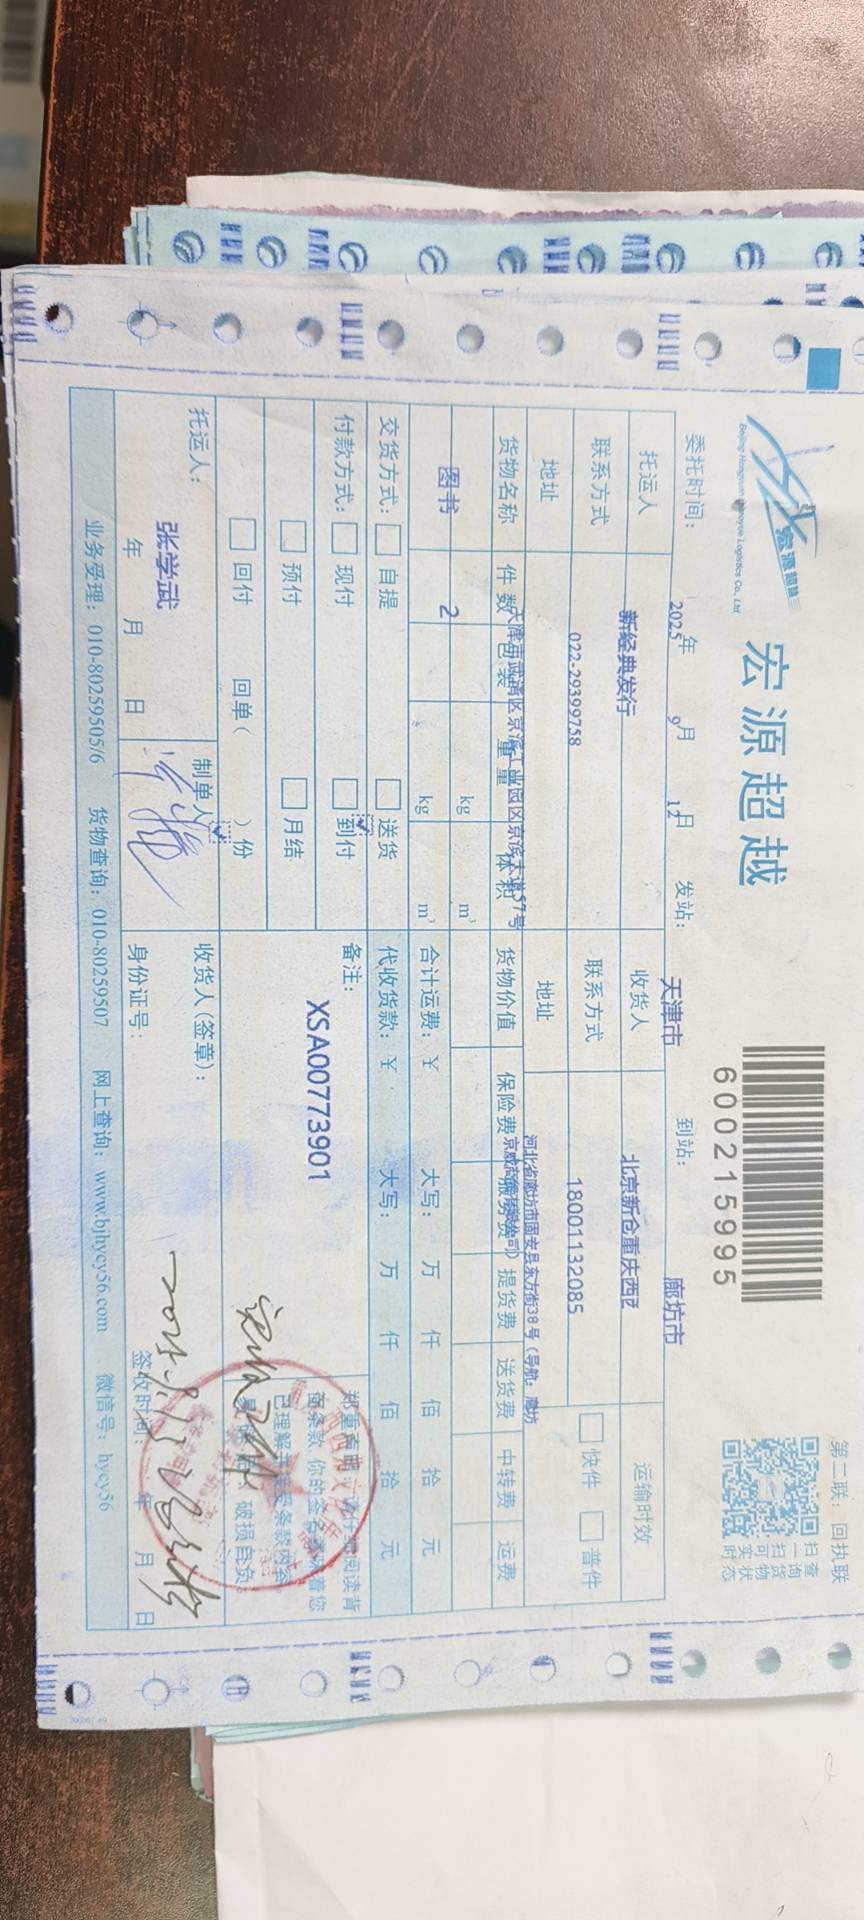 宏源超越
Beijing Hongyuan Chaoyue Logistics Co., Ltd
宏源超越
600215995
第二联：回执联
扫一扫可实时
查询货物状态
委托时间： 2025年 9月 12日 发站： 天津市 到站： 廊坊市
托运人 新经典发行 收货人 北京新仓重庆西区 运输时效
联系方式 022-29399758 联系方式 18001132085 快件 普件
地址 天津市武清区京滨工业园区京滨大道57号 地址 河北省廊坊市固安县东方街38号（导航：廊坊
货物名称 件数 包装 重量 体积 货物价值 保险费 提货费 送货费 中转费 运费
kg m³
图书 2 kg m³ 合计运费：￥ 大写： 万 仟 佰 拾 元
交货方式： 自提 送货 代收货款：￥ 大写： 万 仟 佰 拾 元
付款方式： 现付 到付 备注：
XSA00773901
预付 月结
回付 回单（ ）份
托运人： 张学武 制单人 收货人（签章）：
年 月 日 身份证号： 签收时间： 年 月 日
业务受理：010-80259505/6 货物查询：010-80259507 网上查询：www.bjhycy56.com 微信号：hycy56